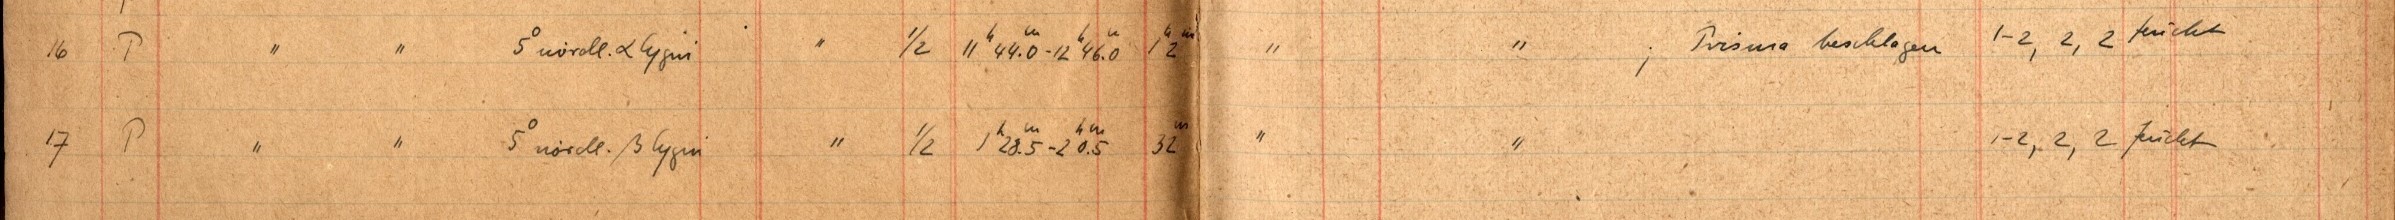 16 P " " 5° nördl. α Cygni " 1/2 11ʰ 44.0ᵐ - 12ʰ 46.0ᵐ 1ʰ 2ᵐ " " ; Prisma beschlagen 1-2, 2, 2 feucht
17 P " " 5° nördl. β Cygni " 1/2 1ʰ 28.5ᵐ - 2ʰ 0.5ᵐ 32ᵐ " " 1-2, 2, 2 feucht